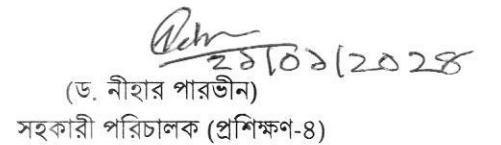 ২১/০১/২০২৪
(ড. নীহার পারভীন)
সহকারী পরিচালক (প্রশিক্ষণ-৪)